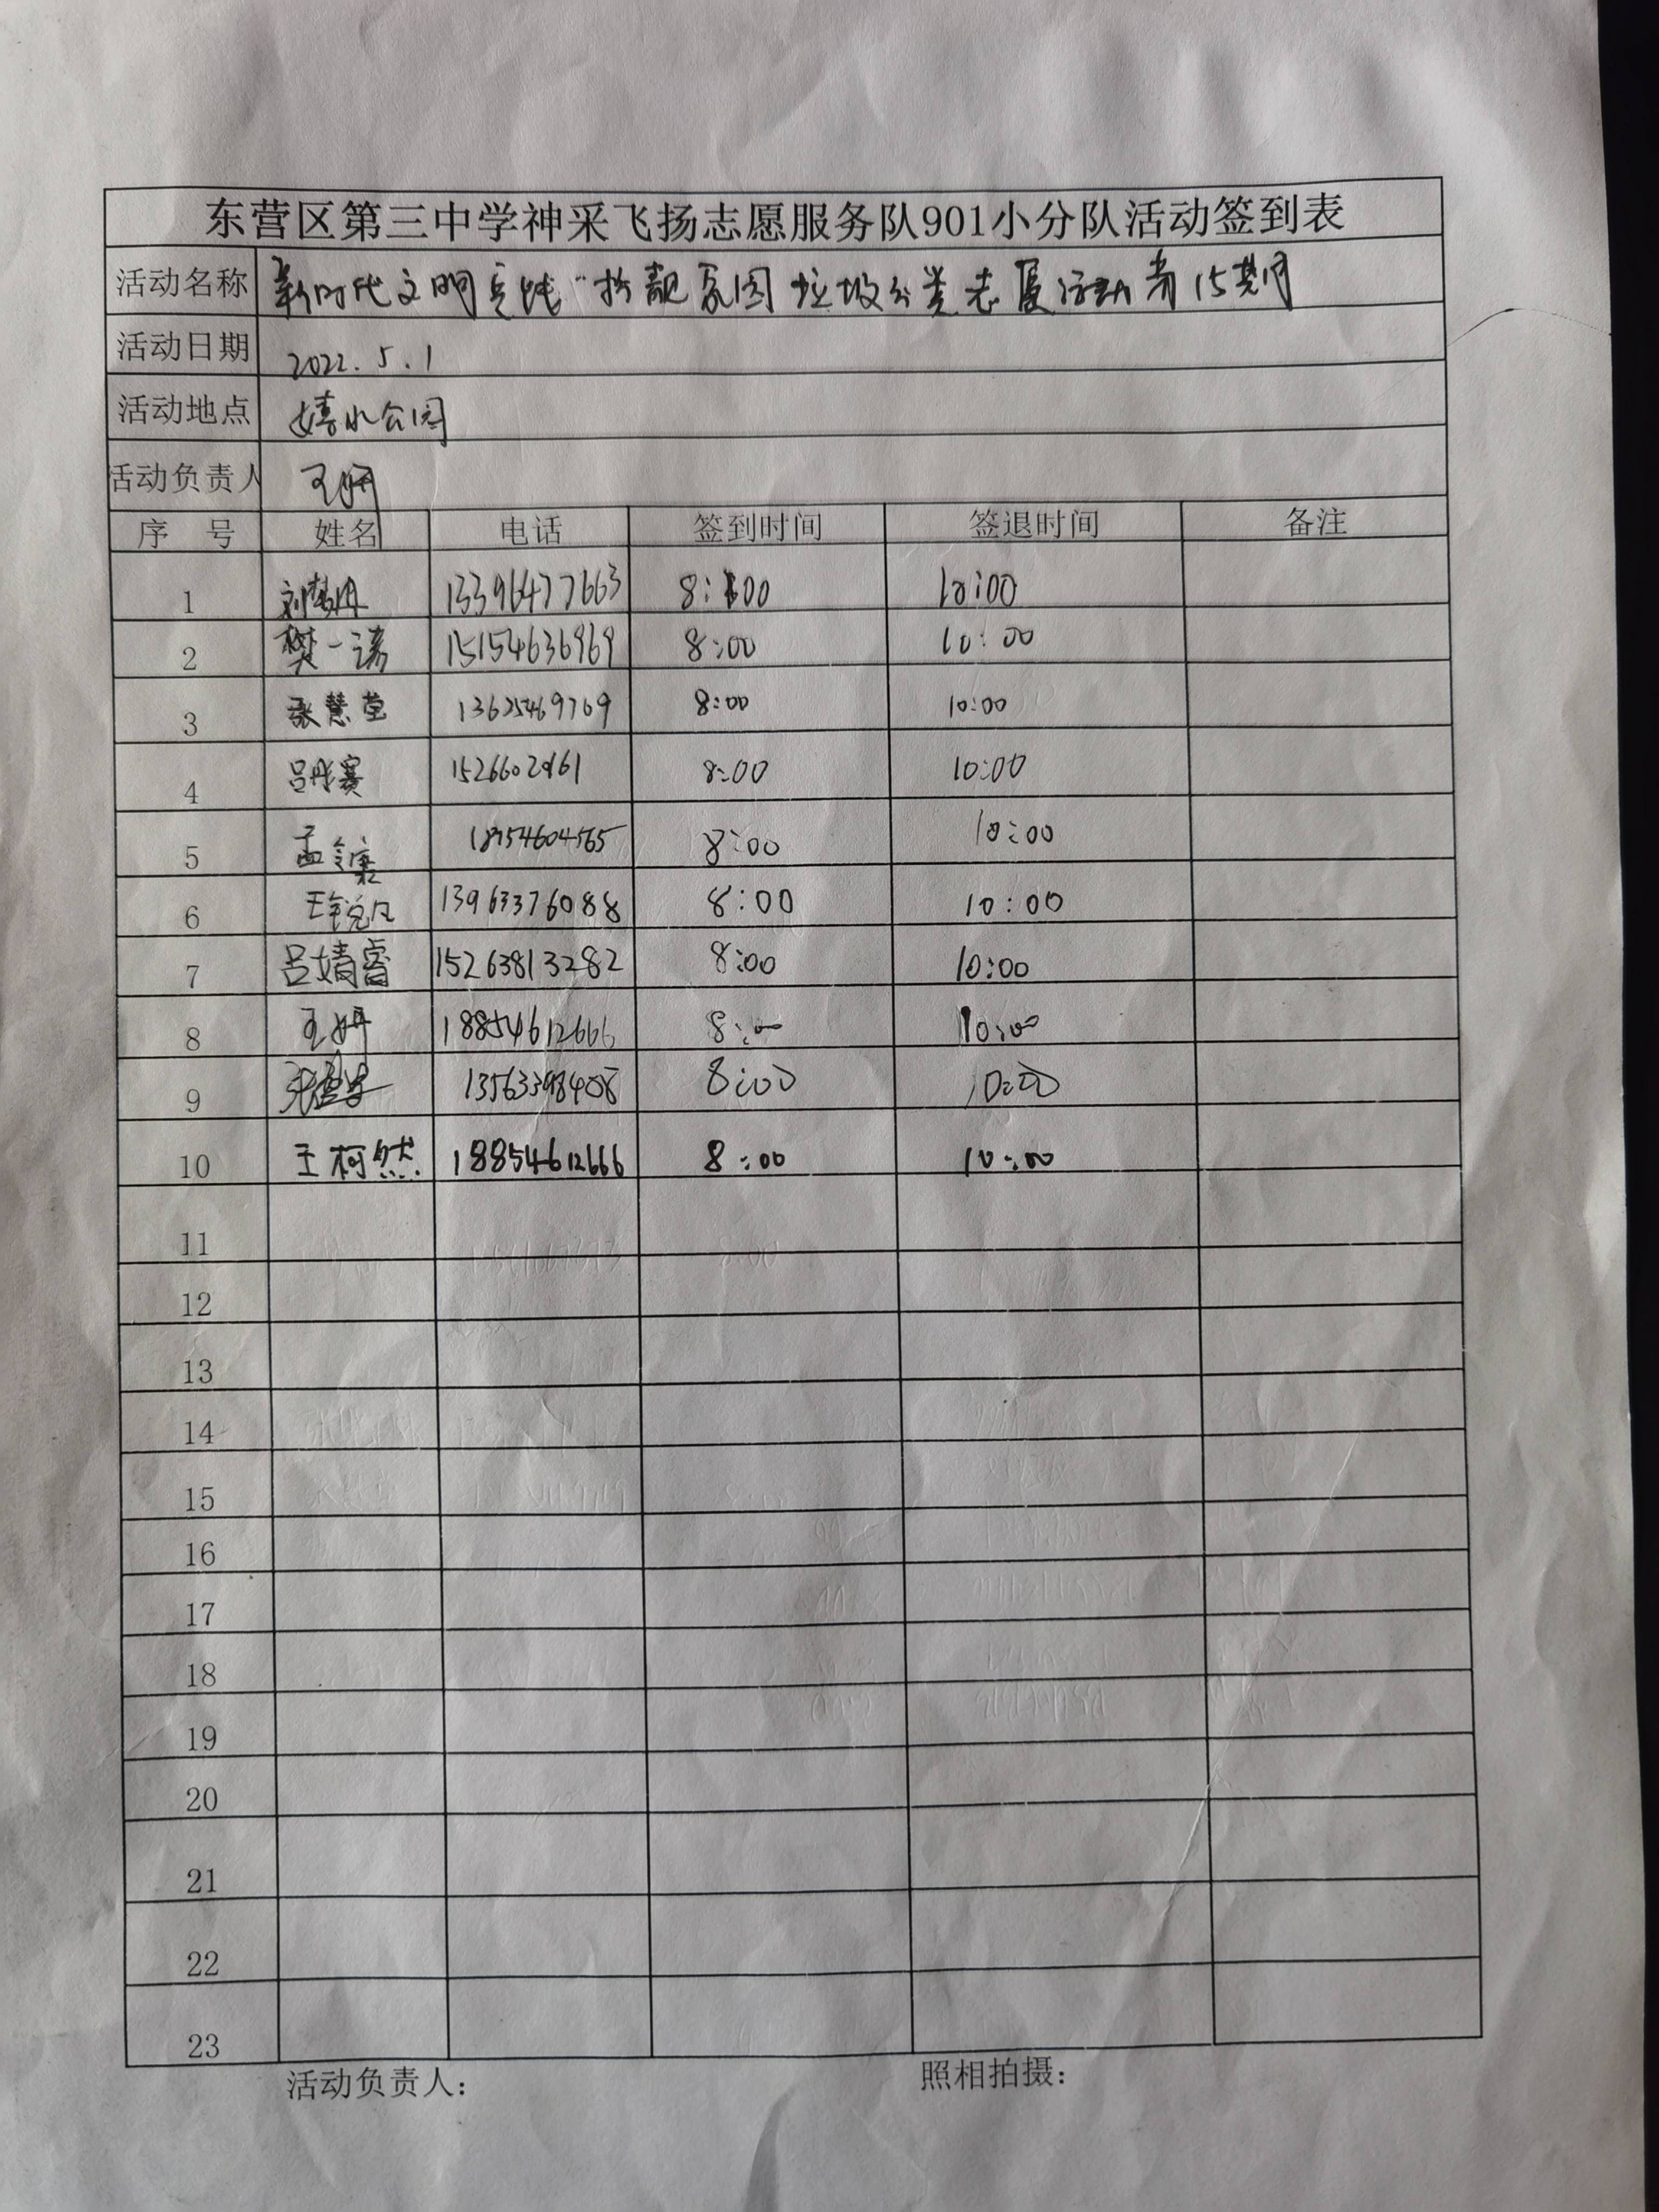 东营区第三中学神采飞扬志愿服务队901小分队活动签到表
活动名称 新时代文明实践"扮靓家园 垃圾分类志愿活动 第15期
活动日期 2022.5.1
活动地点 嬉水公园
活动负责人 王妍
序 号 姓名 电话 签到时间 签退时间 备注
1 13396477663 8:00 10:00
2 樊一诺 15154636969 8:00 10:00
3 张慧莹 13625469769 8:00 10:00
4 吕彤赛 8:00 10:00
5 18954604565 8:00 10:00
6 王锐凡 13963376088 8:00 10:00
7 吕婧睿 15263813282 8:00 10:00
8 王妍 18854612666 8:00 10:00
9 13563398408 8:00 10:00
10 王柯然 18854612666 8:00 10:00
11
12
13
14
15
16
17
18
19
20
21
22
23
活动负责人: 照相拍摄: